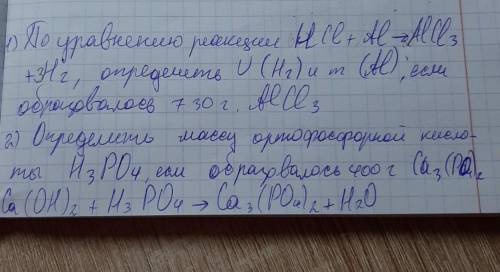 1) По уравнению реакции HCl + Al → AlCl3
+ 3H2, определить V (H2) и m (Al), если
образовалось 730 г. AlCl3
2) Определить массу ортофосфорной кисло-
ты H3PO4, если образовалось 400 г Ca3(PO4)2
Ca(OH)2 + H3PO4 → Ca3(PO4)2 + H2O